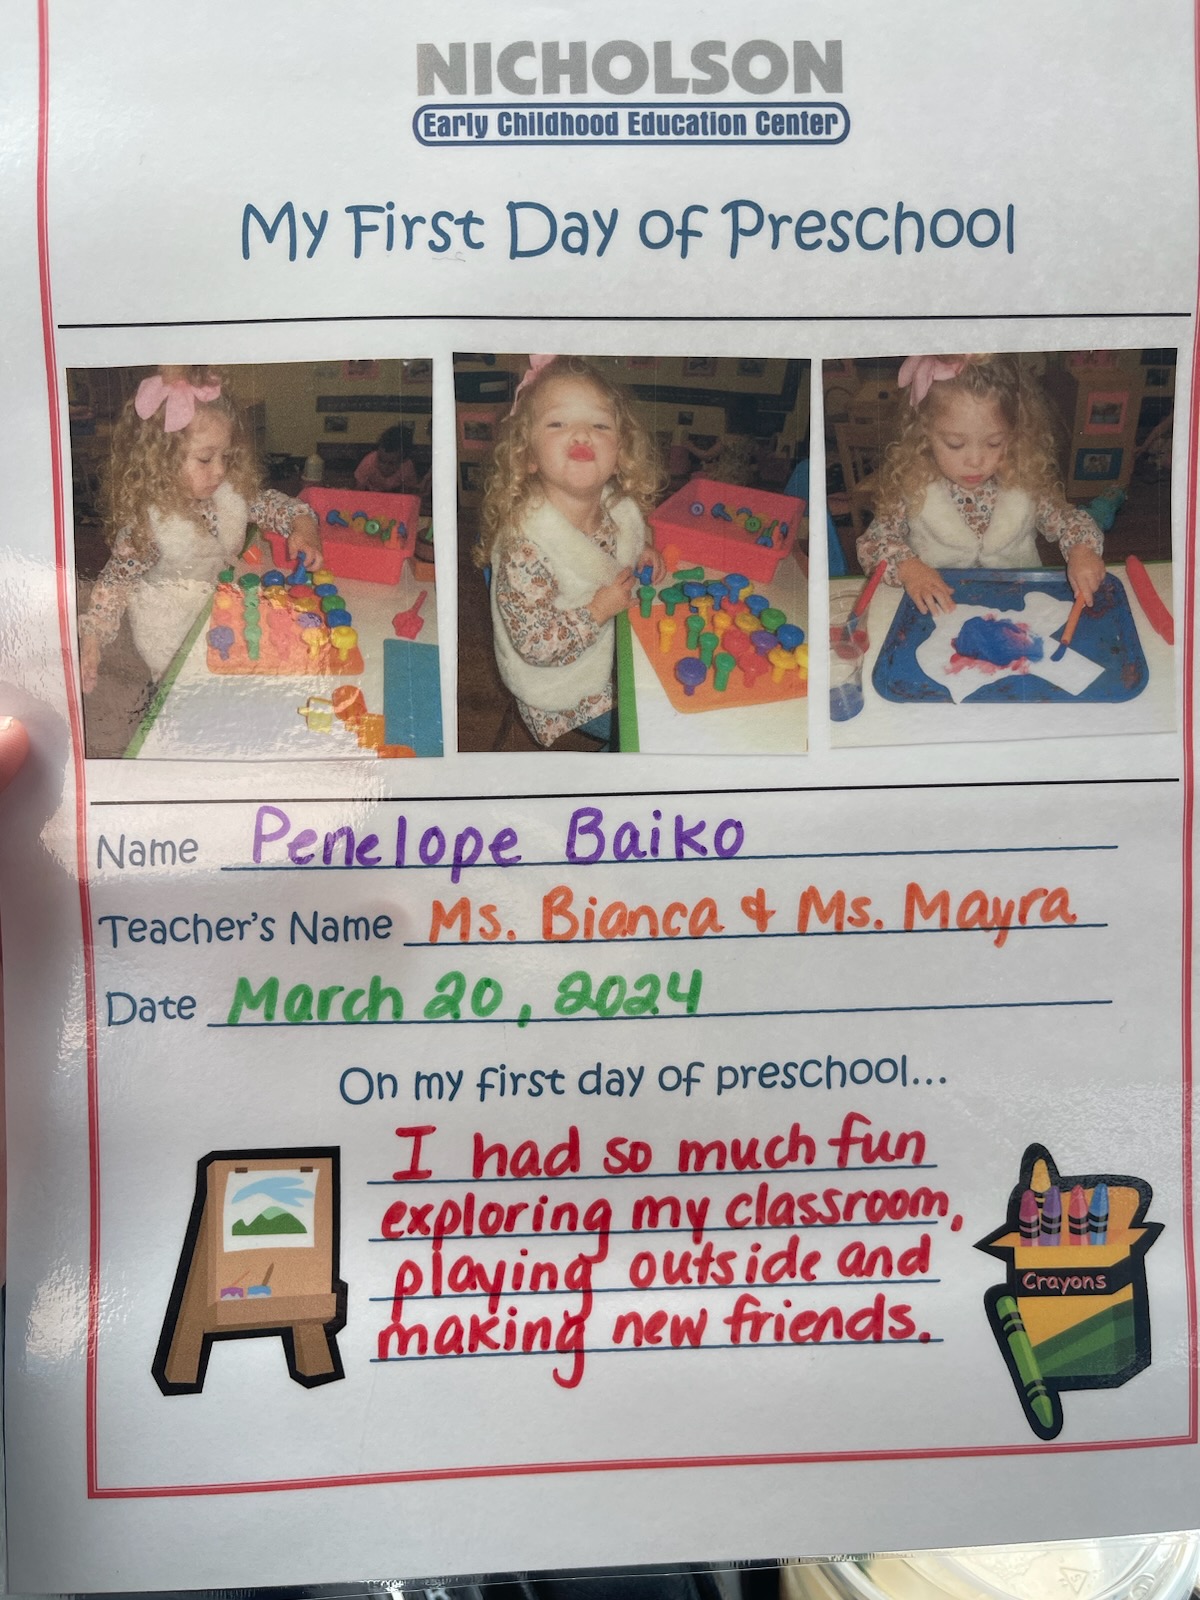 NICHOLSON
Early Childhood Education Center
My First Day of Preschool
Name Penelope Baiko
Teacher's Name Ms. Bianca & Ms. Mayra
Date March 20, 2024
On my first day of preschool...
I had so much fun
exploring my classroom,
playing outside and
making new friends.
Crayons